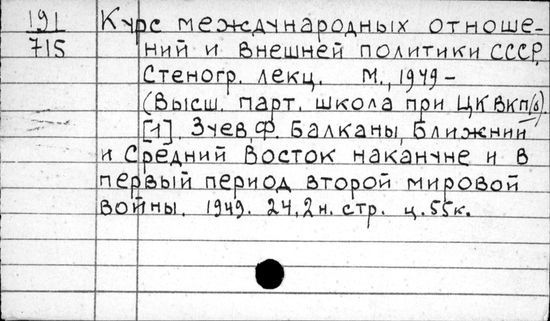 191
715
Курс международных отноше-
ний и внешней политики СССР.
Стеногр. лекц. М., 1949 -
(Высш. парт. школа при ЦК ВКП/б)
[1]. Зуев, Ф. Балканы, Ближний
и Средний Восток накануне и в
первый период второй мировой
войны. 1949. 24, 2н. стр. ц. 55к.